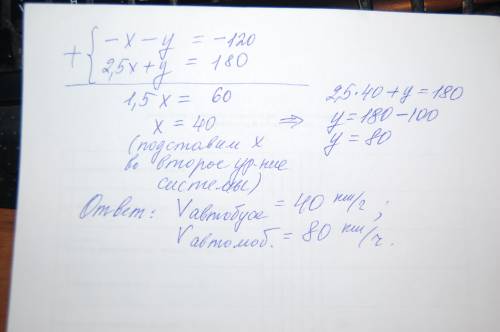 + { -x - y = -120
2,5x + y = 180
1,5x = 60
x = 40 ⇒
(подставим x
во второе ур-ние
системы)
2,5·40 + y = 180
y = 180 - 100
y = 80
Ответ: Vавтобуса = 40 км/ч;
Vавтомоб. = 80 км/ч.